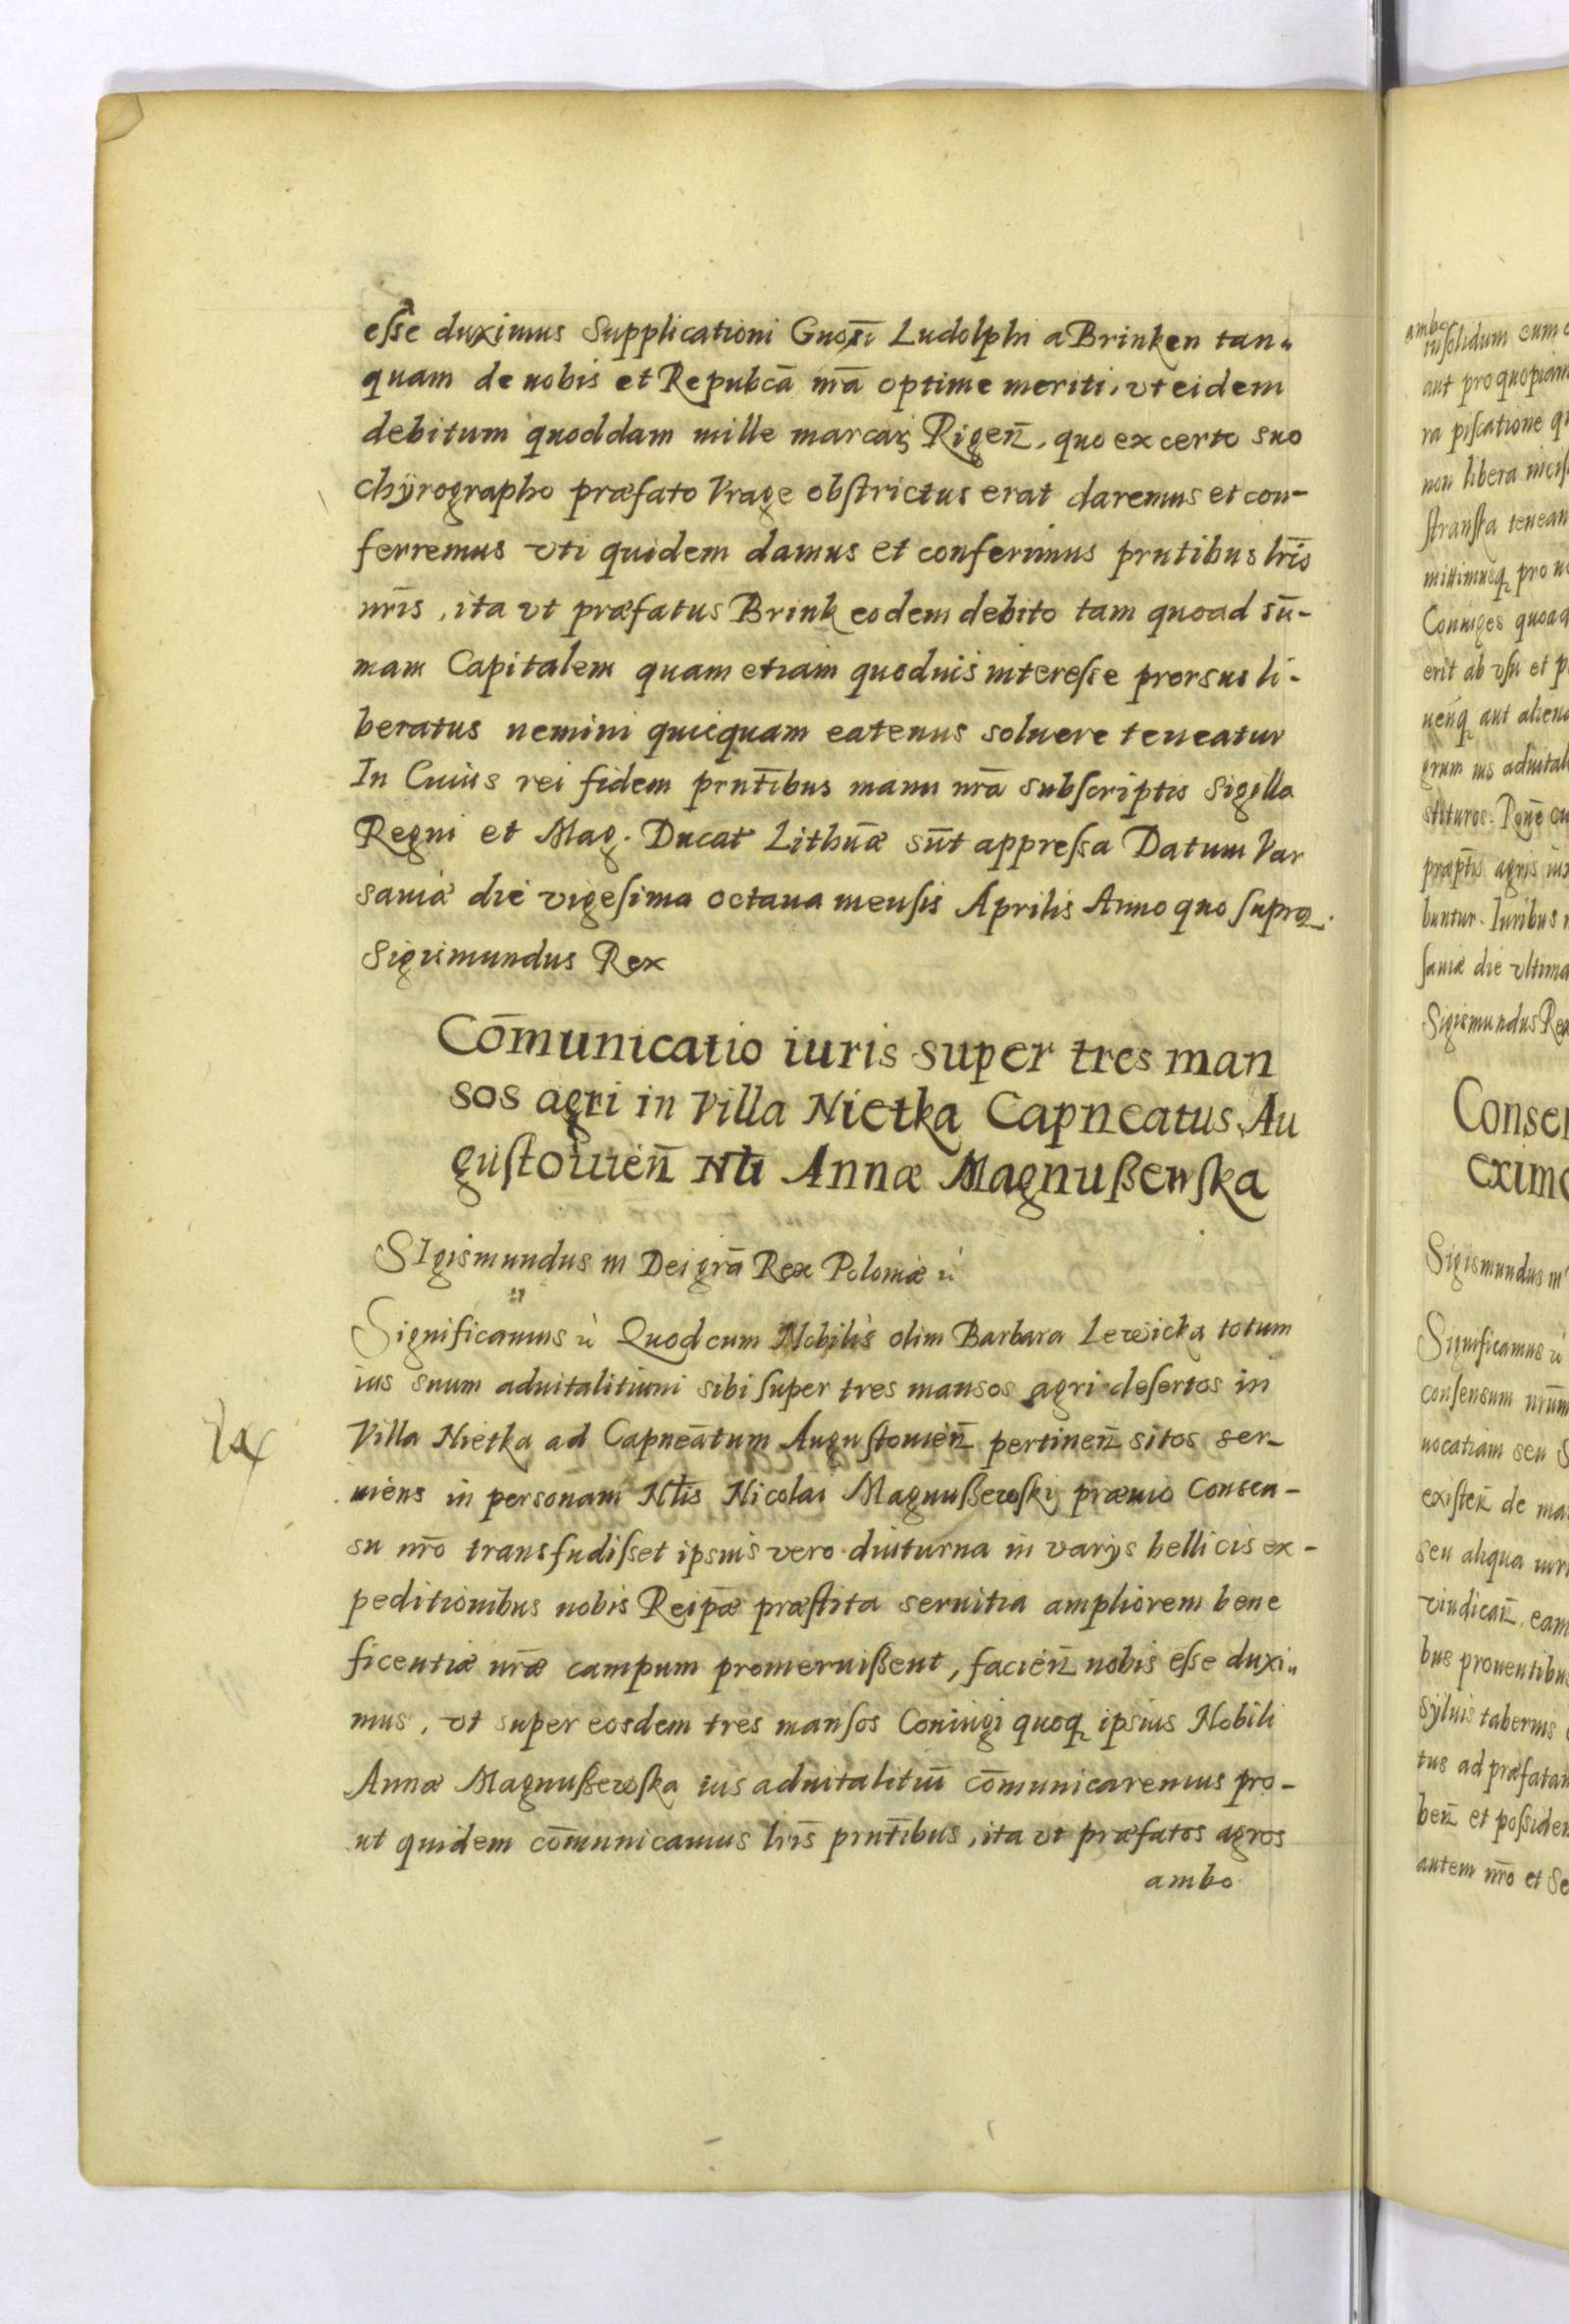 esse duximus Supplicationi Gnosi Ludolphi a Brinken tan„
quam de nobis et Repubcā nrā optime meriti, vt eidem
debitum quoddam mille marcar Rigen̄, quo ex certo suo
chÿrographo præfato Vrage obstrictus erat daremus et con-
ferremus vti quidem damus et conferimus prntibus lrīs
nrīs, ita vt præfatus Brink eodem debito tam quoad sū-
mam Capitalem quam etiam quoduis interesse prorsus li-
beratus nemini quicquam eatenus soluere teneatur
In Cuius rei fidem prntībus manu nrā subscriptis Sigilla
Regni et Mag. Ducat Lithūæ sūt appressa Datum Var
sauiæ die vigesima octaua mensis Aprilis Anno quo supra.
Sigismundus Rex
Cōmunicatio iuris super tres man
sos agri in Villa Nietka Capneatus Au
gustouien̄ Nli Annæ Magnußewska
SIgismundus III Dei grā Rex Poloniæ
Significamus Quod cum Nobilis olim Barbara Lewicka totum
ius suum aduitalitium sibi super tres mansos agri desertos in
Villa Nietka ad Capneātum Augustouien̄ pertinen̄ sitos ser-
uiens in personam Nlis Nicolai Magnußewski præuio Consen-
su nrō transfudisset ipsius vero diuturna in varijs bellicis ex-
peditionibus nobis Reipæ præstita seruitia ampliorem bene
ficentiæ nrǣ campum promeruißent, facien̄ nobis esse duxi„
mus, vt super eosdem tres mansos Coniugi quoq ipsius Nobili
Annæ Magnußewska ius aduitalitiū cōmunicaremus pro-
ut quidem cōmunicamus lrīs prntībus, ita vt præfatos agros
ambo
ambo
insolidum cum
aut pro quopiam
ra piscatione
non libera
stranska
mittimusq pro
Coniuges quoad
erit ab vsu et
ueq aut
grum ius
stituros.
agris
buntur. Iuribus
sauiæ die vltima
Sigismundus Rex
Significamus
consensum nrūm
uocatiam seu
existen̄ de
seu aliqua
vindican̄, eam
bus prouentibus
syluis tabernis
tus ad præfatam
ben̄ et
autem nrō et